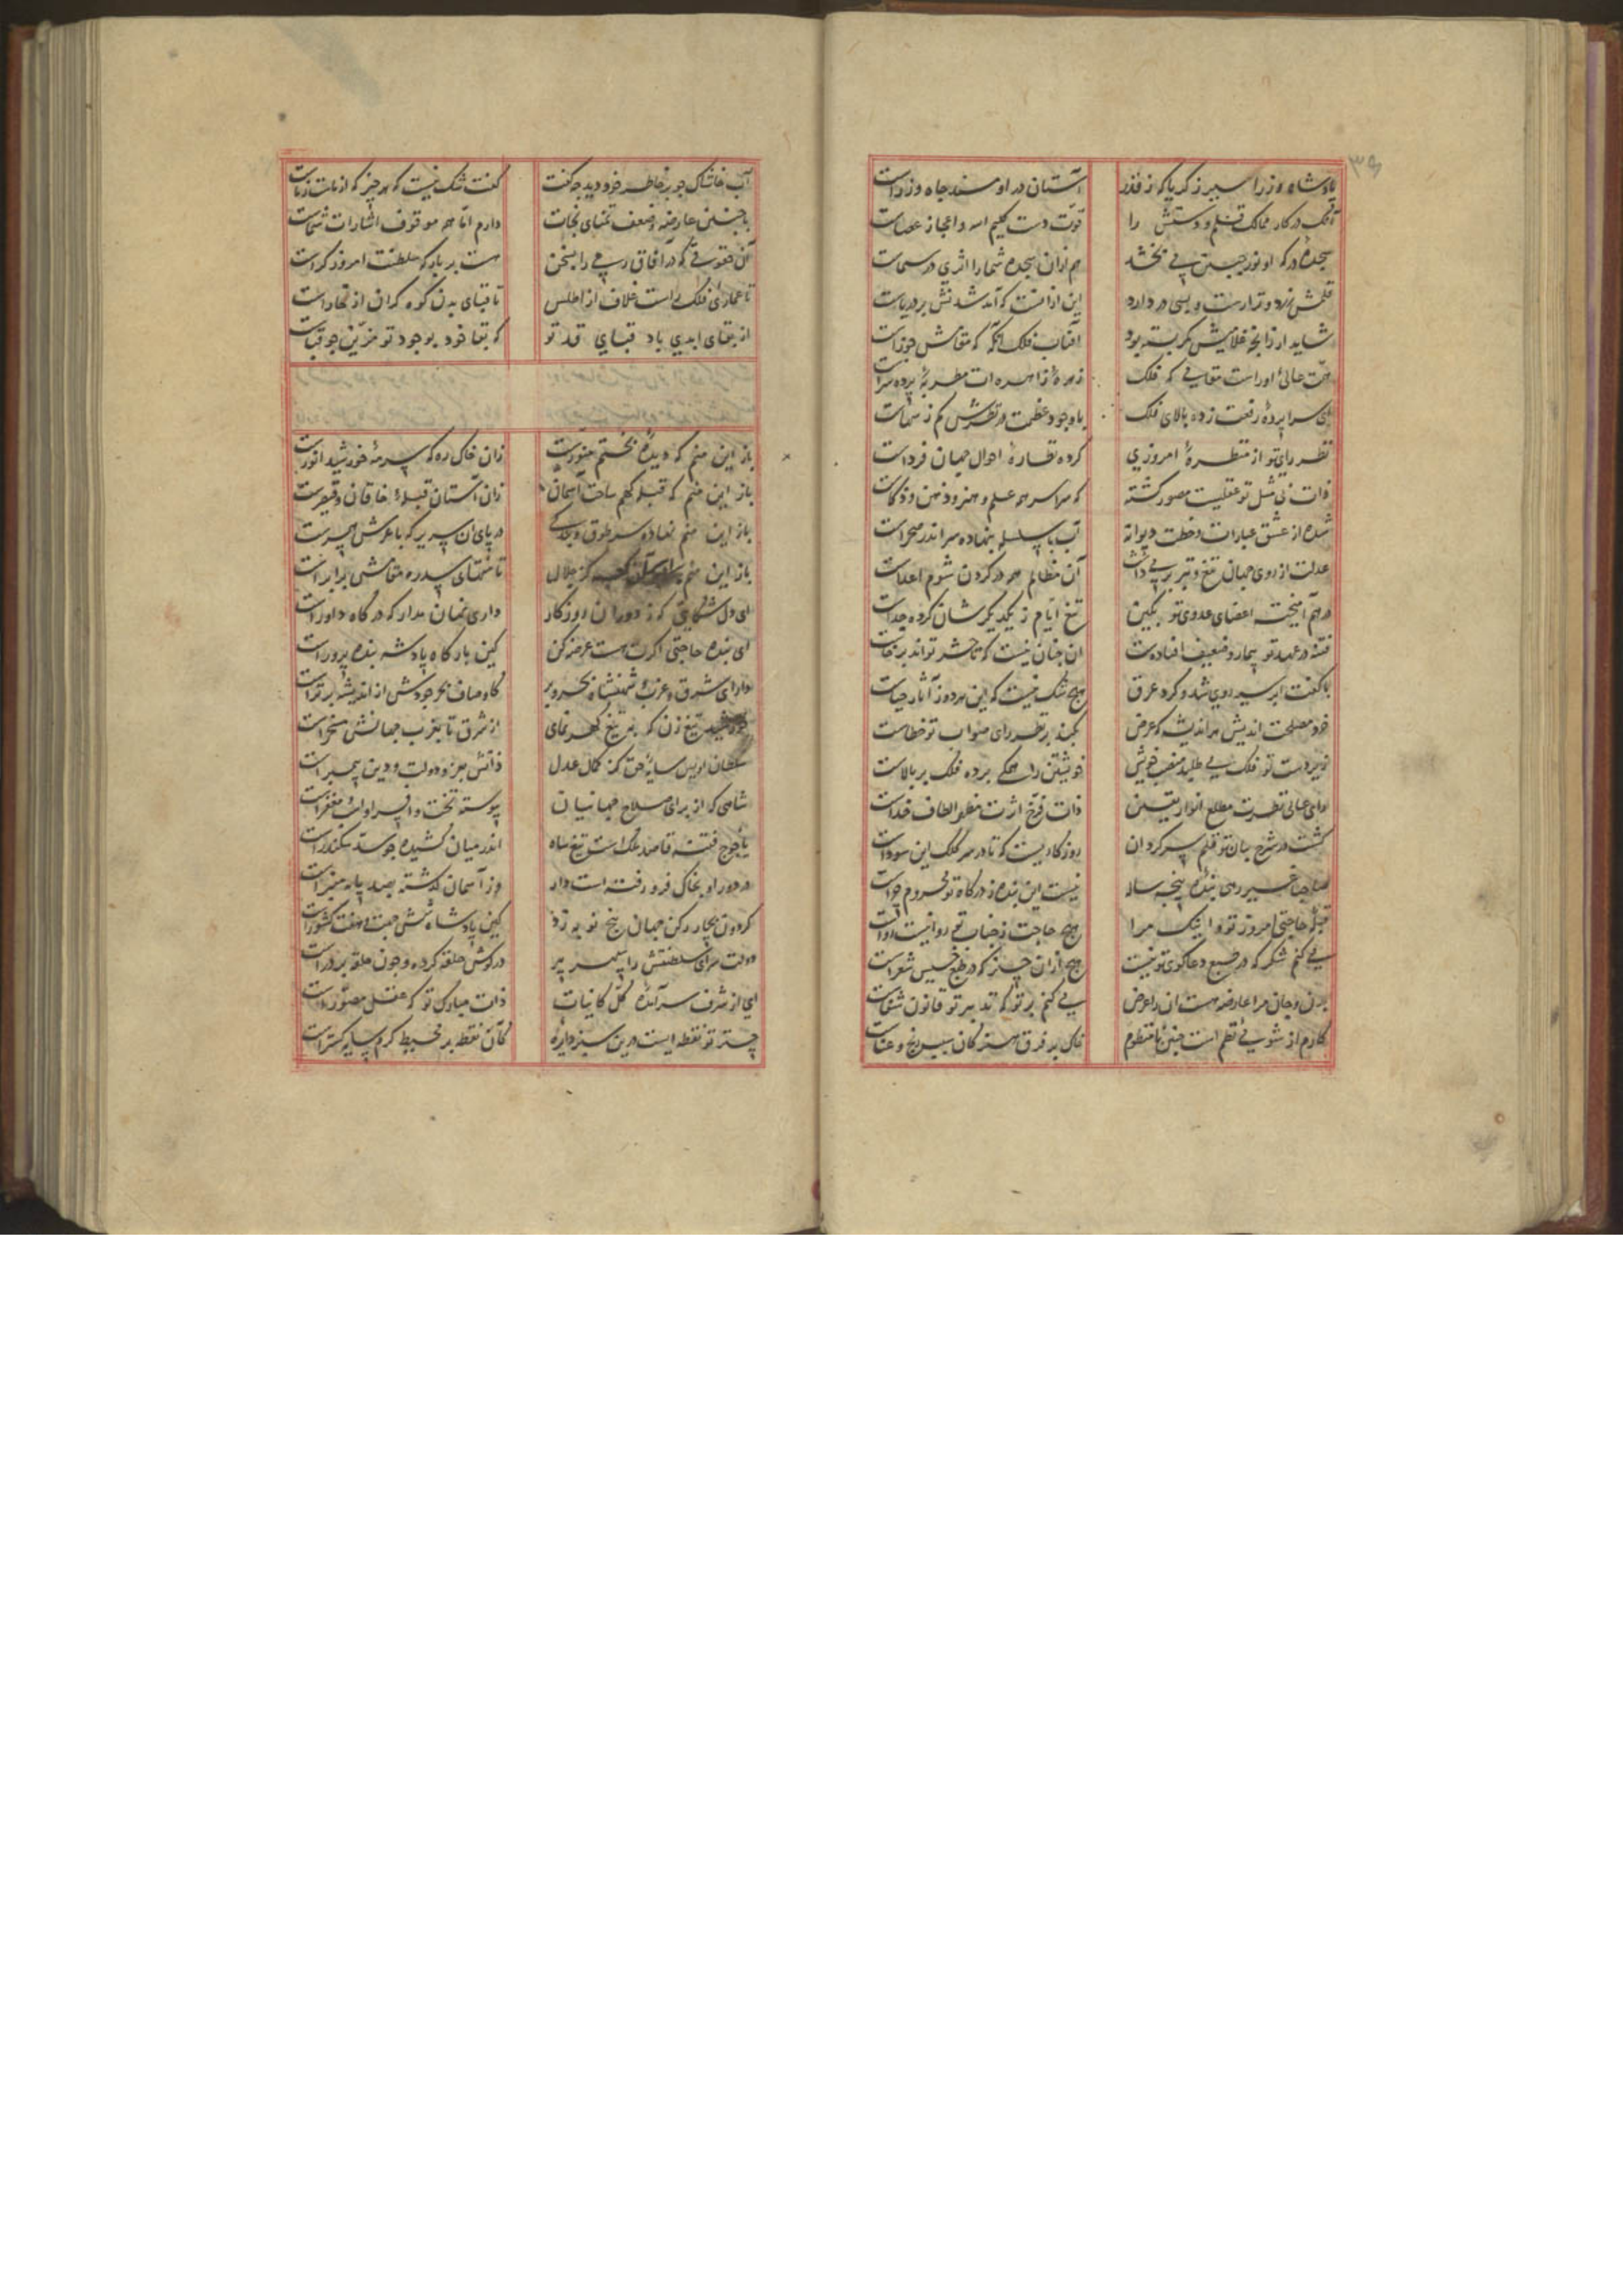 پادشاه وزرا سیر زکریا که ز قدر آستان در او مسند جاه وزراست
آنک در کار ممالک قلم و دستش را قوت دست کلیم اسه و اعجاز عصاست
سجده درکه او نور جبین می بخشد هم ازان سجده شما را اثری در سیماست
قلمش زرد و نزارست و بسی در دارد این ازانست که آمد شدنش بر دریاست
شاید ار زانچه غلامیش کمر بسته بود آفتاب فلک آنکه که مقامش جوزاست
همت عالی او راست مقامی که فلک زهره زاهره ات مطربه پرده سراست
ای سراپرده رفعت زده بالای فلک باوجود عظمت در نظرش کم ز سهاست
نظر رای تو از منظره امروزی کرده نظاره احوال جهان فرداست
ذات بی مثل تو عقلیست مصور کشته که سراسر همه علم و هنر و ذهن و ذکاست
شده از عشق عبارات و خطت دیوانه آب با سلسله بنهاده سر اندر صحراست
عدلت از روی جهان تیغ و تبر بر می داشت آن مظالم همه در کردن شوم اعداست
درهم آمیخته اعضای عدوی تو بکین تیغ ایام ز یکدیکرشان کرده جداست
فتنه در عهد تو بیمار و ضعیف افتادست آن چنان نیست که تا حشر تواند برخاست
با کفت ابر سیه روی شد و کرد عرق هیچ شک نیست که این هر دو ز آثار حیاست
خرد مصلحت اندیش هر اندیشه که عرض نکند بر نظر رای صواب تو خطاست
زیردست تو فلک می طلبد منصب خویش خویشتن را همکی برده فلک بر بالاست
رای عالی نظرت مطلع انوار یقین ذات فرخ اثرت مظهر الطاف خداست
کشت در شرح بیان تو قلم سرکردان روزکاریست که تا در سر کلک این سوداست
صاحبا غیر رهی بنده پنجه ساله نیست این بنده ز درکاه تو محروم چراست
حاجتی امروز تو و اینک مرا هیچ حاجت ز جناب تو روا نیست رواست
می کنم شکر که در طبع دعاکوی تو نیست هیچ ازان چیز که در طبع خسیس شعراست
بدن و جان مرا عارضه هست آن را عرض می کنم بر تو که تدبیر تو قانون شفاست
کارم از شو بی نظم است چنین نامنظوم خاک بر فرق هنر کان سبب رنج و عناست
آب خاشاک جو بر خاطر خود دید چه کفت کفت شک نیست که هر چیز که از ماست زماست
با چنین عارضه و ضعف تمنای نجات دارم اما همه موقوف اشارات شماست
آن حقوقی که در آفاق رهی را بسخن هست بر بارکه سلطنت امروز کراست
تا عماری فلک راست غلاف از اطلس تا قبای بدن کوه کران از خاراست
از بقای ابدی باد قبای قد تو که بقا خود بوجود تو مزین چو قباست
باز این منم که دیده بختم منورست زان خاک ره که سرمه خورشید انورست
باز این منم که قبله کهم ساحت آسمان زان آستان قبله خاقان و قیصرست
باز این منم نهاده سر طوق در پای آن سریر که با عرش همسرست
باز این منم کز جلال تا منتهای سدره مقامش برابرست
ای دل شکایتی که ز دوران روزکار داری نهان مدار که درکاه داورست
ای بنده حاجتی اکرت هست عرضه کن کین بارکاه پادشه بنده پرورست
دارای شرق و غرب شهنشاه بحر و بر کاوصاف بحر جودش از اندیشه برترست
خورشید تیغ زن که بر تیغ کهر نمای از شرق تا بغرب جهانش مسخرست
سلطان اویس سایه حق کز کمال عدل ذاتش جز و دولت و دین پیمبرست
شاهی که از برای صلاح جهانیان پیوسته تخت و افسر او لت و مغفرست
یاجوج فتنه قاصد ملک است تیغ شاه اندر میان کشیده چو سد سکندرست
در دور او بخاک فرو رفته است دار وز آسمان کذشته بصد پایه منبرست
کردون بچار رکن جهان پنج نوبه زد کین پادشاه شش جهت هفت کشورست
دولت سرای سلطنتش را سپهر پیر در کوش حلقه کرده و چون حلقه بر درست
ای از شرف سرآمده کل کاینات ذات مبارک تو که عقل مصورست
چتر تو نقطه ایست درین سبز دایره کان نقطه بر محیط کرم سایه کسترست